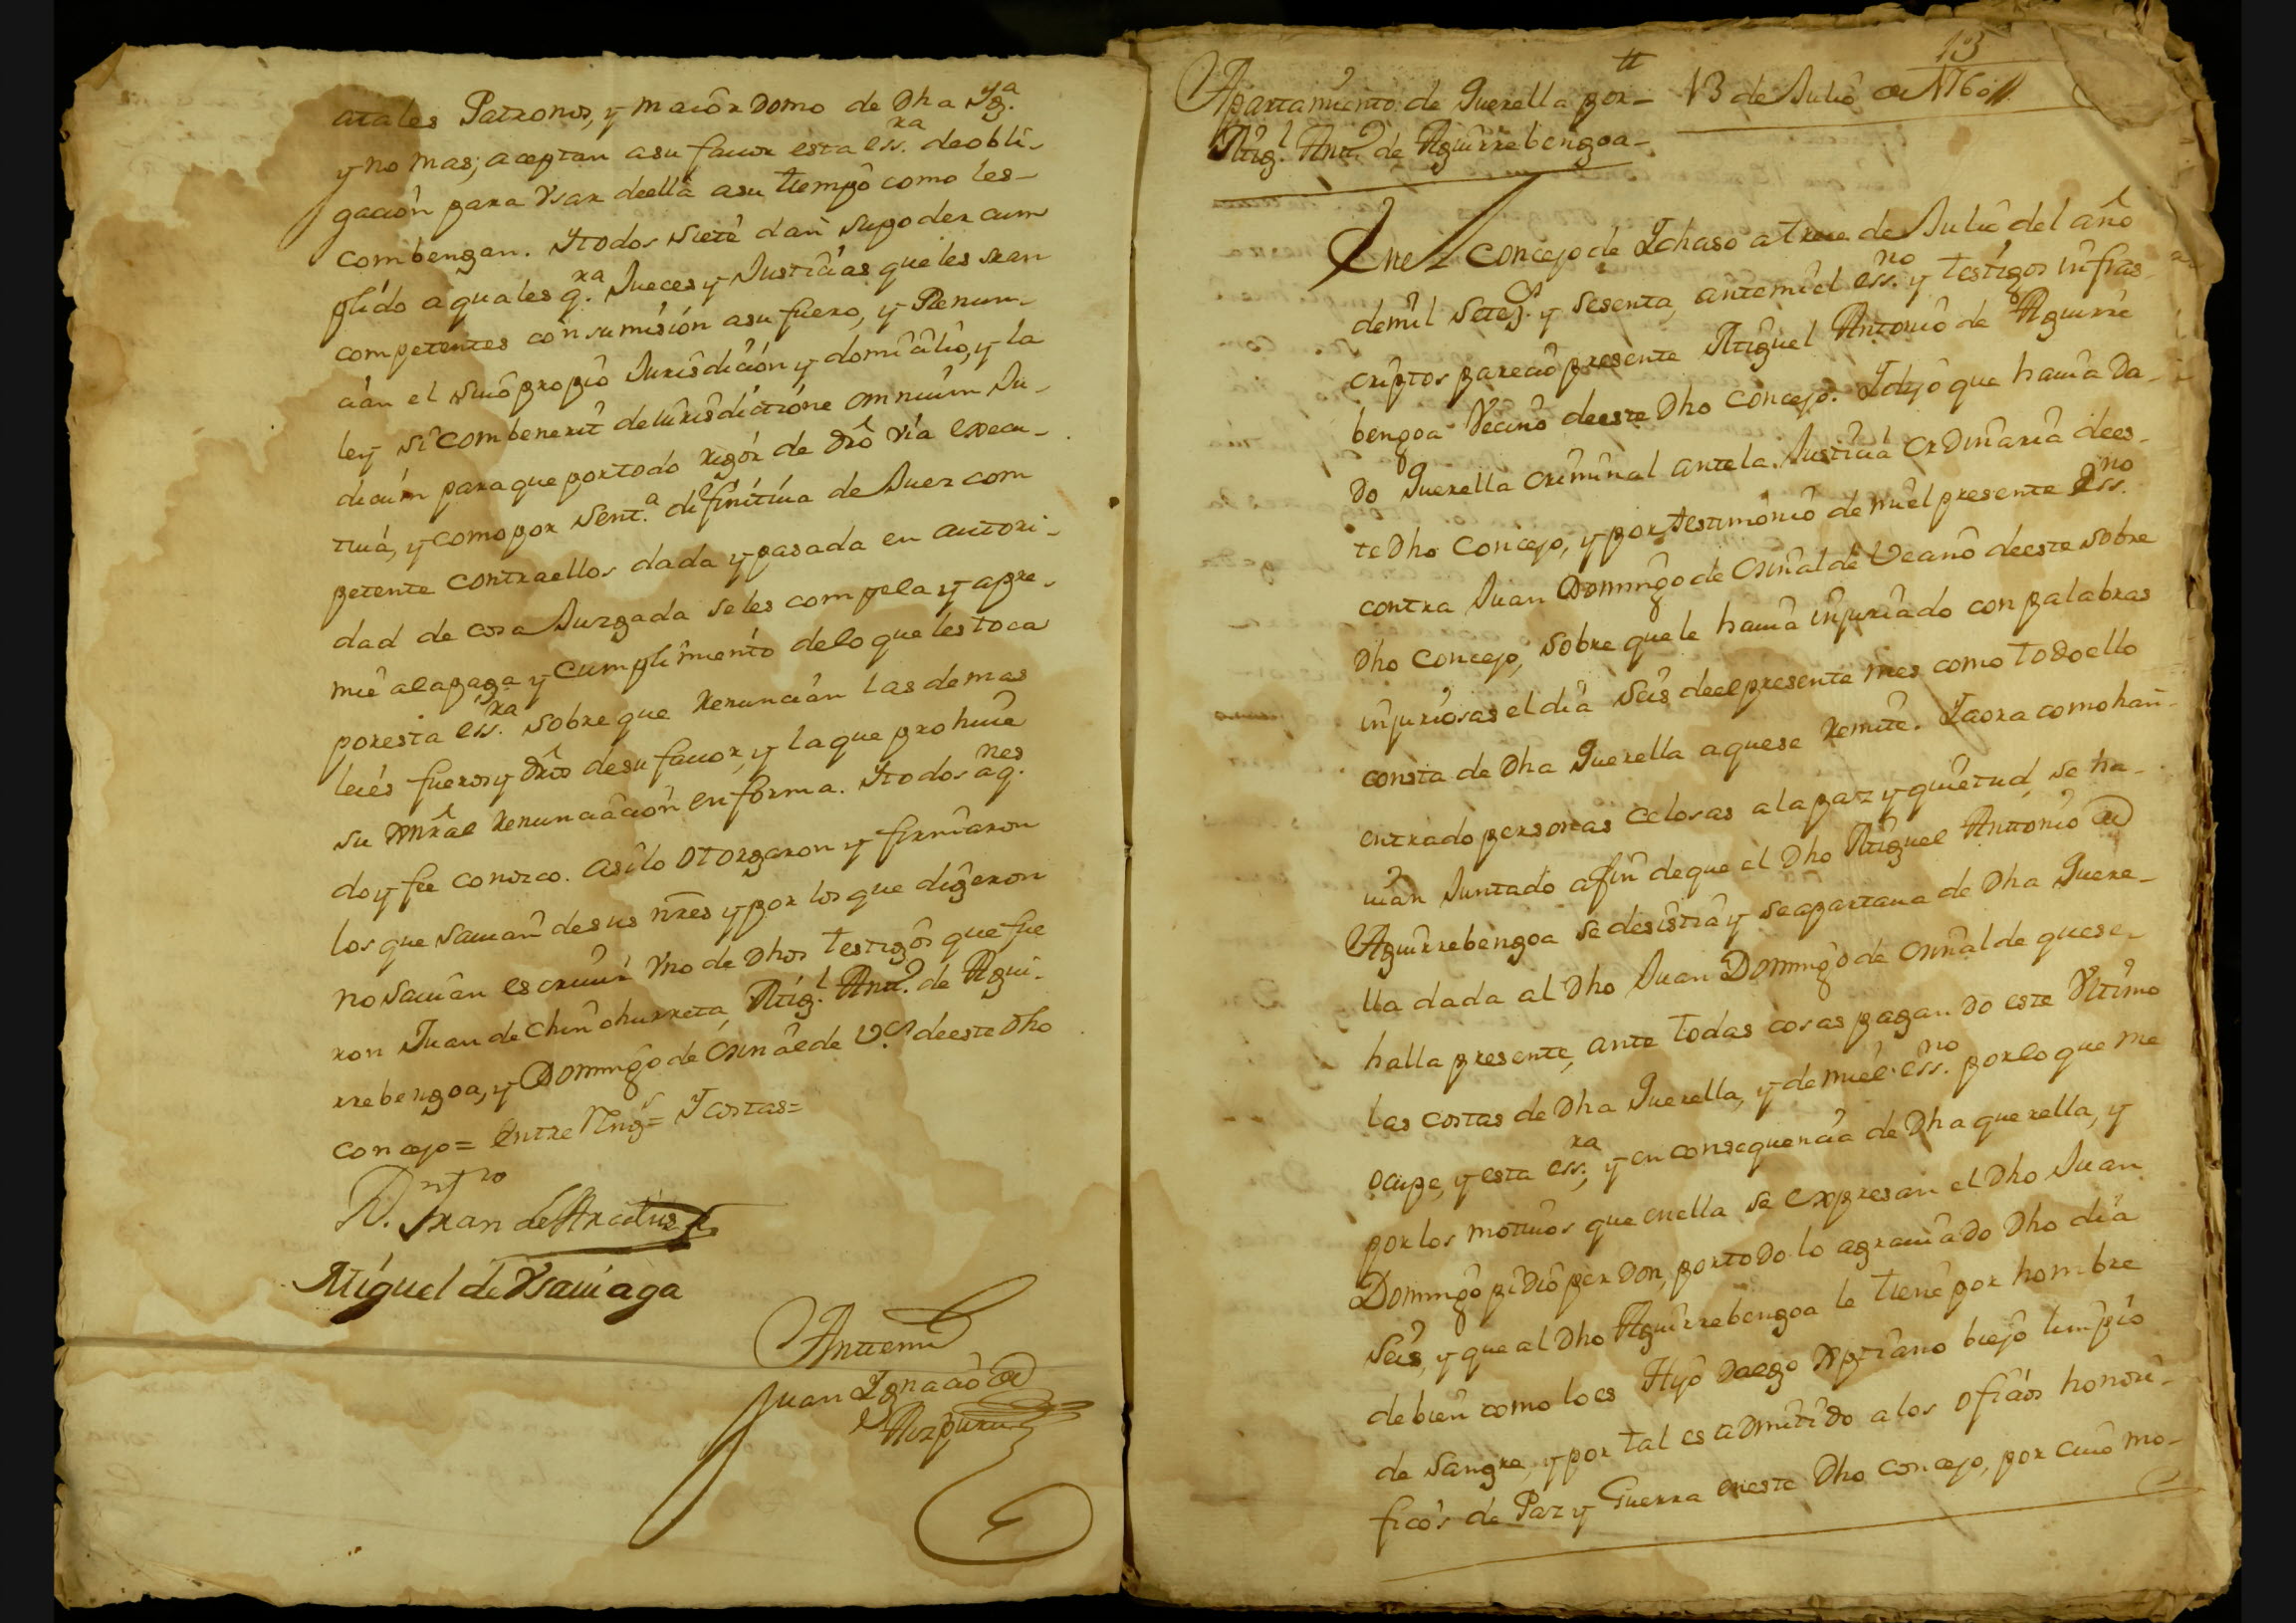 atales Patronos, y maiôr Domo de Dha Yg.ª
y no mas; aceptan asu fauor esta ess.ra deobli-
gaciôn para Vsar deella asu tiempo como les-
combengan. Ytodos siete dan supoder cum
plido aquales q.ra Jueces y Justicias queles sean
competentes con sumisión asu fuero, y Renun-
cian el suio propio Jurisdicion y domicilio, y la
ley si combenerit deIurisdictióne omnium Iu-
dicum paraque portodo rigór de dro via execu-
tiua, y comopor Sent.a difinitiua de Juez com
petente contraellos dada y pasada en autori-
dad de cosa Juzgada seles compela y apre-
mie alapaga y Cumplimiento delo que les toca
poresta ess.ra sobre que renuncian las demas
leies fueros y dros desu fauor, y laque prohiue
su Gnral renunciación en forma. Ytodos aq.nes
doy fee conozco. asilo otorgaron y firmaron
los que sauian desus nres y por los que digeron
no sauian escriuir Vno de Dhos testigos que fue
ron Juan de Chinchurreta, Mig.l Antt.o de Agui-
rrebengoa, y Domingo de Osinalde V.s deeste Dho
concejo= Entre Rengs= Ycostas=
D. Fran de
Miguel de Vsauiaga
Anttemi
Juan Ygnacio de
Aizpuru
13
Apartamiento de Querella por- 13 de Julio de 1760
Mig.l Antt.o de Aguirrebengoa-
Enel concejo de Ichaso atrece de Julio del año
demil Setez.s y sesenta, antemi el ess.no y testigos infras-
criptos parecio presente Miguel Antonio de Aguirre
bengoa Vecino deeste Dho concejo. Ydijo que hauia da-
do Querella criminal antela Justicia Ordinaria dees-
te Dho Concejo, y por testimonio de miel presente Ess.no
contra Juan Domingo de Osinalde Vecino deeste sobre
Dho Concejo, sobre quele hauia injuriado con palabras
injuriosas el dia seis deelpresente mes como todoello
consta de Dha Querella aquese remite. Yaora como han-
entrado personas celosas ala paz y quietud, se ha-
uian Juntado afin deque el Dho Miguel Antonio de
Aguirrebengoa se desistia y seapartaua de Dha Quere-
lla dada al Dho Juan Domingo de Osinalde quese-
halla presente, ante todas cosas pagando este Vltimo
las costas de Dha Querella, y de miel ess.no porlo que me
ocupe, y esta ess.ra, y en consequencia de Dha querella, y
por los motiuos que enella se expresan el Dho Juan
Domingo pidio perdon, portodo lo agrauiado Dho dia
Seis, y que al Dho Aguirrebengoa le tiene por hombre
debien como loes Hijo dalgo Xptiano biejo limpio
de sangre, y por tal es admitido alos oficios honori-
ficos de Paz y Guerra eneste Dho concejo, por cuio mo-